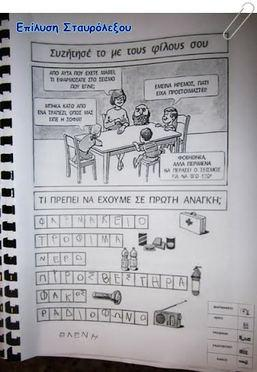 Επίλυση Σταυρόλεξου
Συζήτησέ το με τους φίλους σου
ΑΠΟ ΑΥΤΑ ΠΟΥ ΕΧΕΤΕ ΜΑΘΕΙ,
ΤΙ ΕΦΑΡΜΟΣΑΤΕ ΣΤΟ ΣΕΙΣΜΟ
ΠΟΥ ΕΓΙΝΕ;
ΕΜΕΙΝΑ ΗΡΕΜΟΣ, ΓΙΑΤΙ
ΕΙΧΑ ΠΡΟΕΤΟΙΜΑΣΤΕΙ!
ΜΠΗΚΑ ΚΑΤΩ ΑΠΟ
ΕΝΑ ΤΡΑΠΕΖΙ, ΟΠΩΣ ΜΑΣ
ΕΙΠΕ Η ΣΟΦΙΑ!
ΦΟΒΗΘΗΚΑ,
ΑΛΛΑ ΠΕΡΙΜΕΝΑ
ΝΑ ΠΕΡΑΣΕΙ Ο ΣΕΙΣΜΟΣ
ΓΙΑ ΝΑ ΒΓΩ ΕΞΩ!
ΤΙ ΠΡΕΠΕΙ ΝΑ ΕΧΟΥΜΕ ΣΕ ΠΡΩΤΗ ΑΝΑΓΚΗ;
ΦΑΡΜΑΚΕΙΟ
ΤΡΟΦΙΜΑ
ΝΕΡΟ
ΠΥΡΟΣΒΕΣΤΗΡΑ
ΦΑΚΟΣ
ΡΑΔΙΟΦΩΝΟ